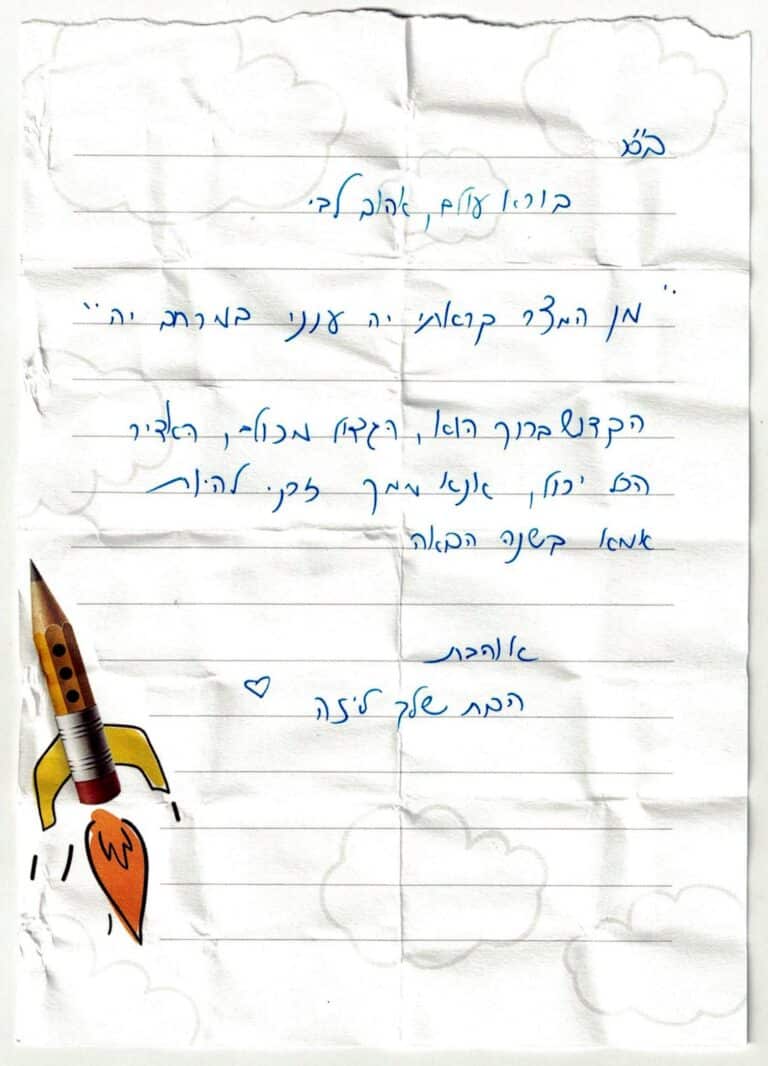 בס"ד
בורא עולם, אהוב לבי.
"מן המצר קראתי יה ענני במרחב יה"
הקדוש ברוך הוא, הגדול מכולם, האדיר
הכל יכול, אנא ממך זכני להיות
אמא בשנה הבאה
אוהבת
הבת שלך ליזה ♡